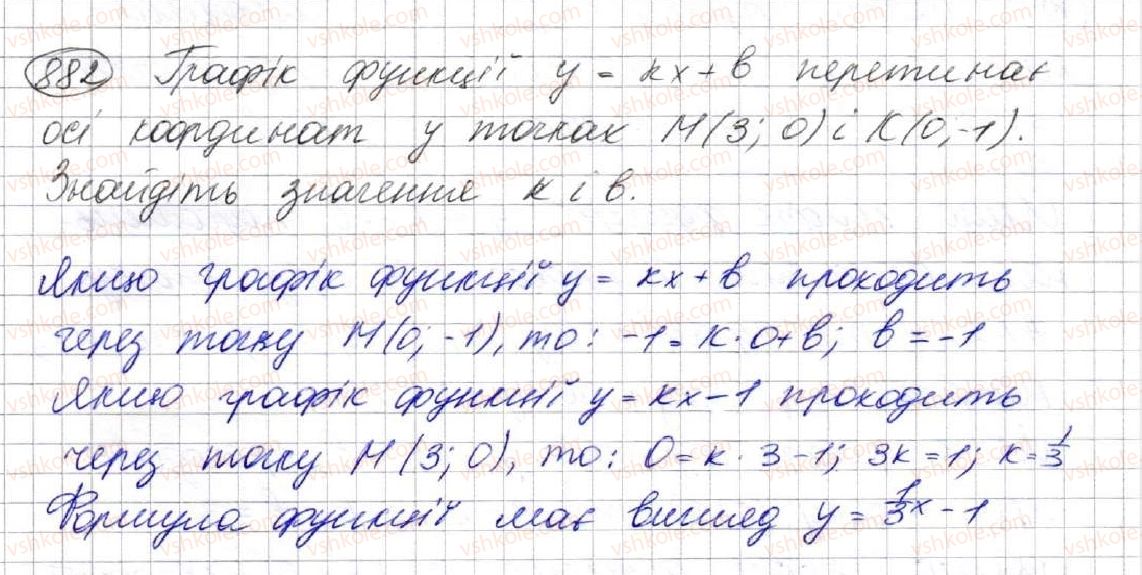 882 Графік функції y = kx + b перетинає
осі координат у точках M(3; 0) і K(0; -1).
Знайдіть значення k і b.
Якщо графік функції y = kx + b проходить
через точку M(0; -1), то: -1 = k · 0 + b; b = -1
Якщо графік функції y = kx - 1 проходить
через точку M(3; 0), то: 0 = k · 3 - 1; 3k = 1; k = 1/3
Формула функції має вигляд y = 1/3 x - 1
vshkole.com